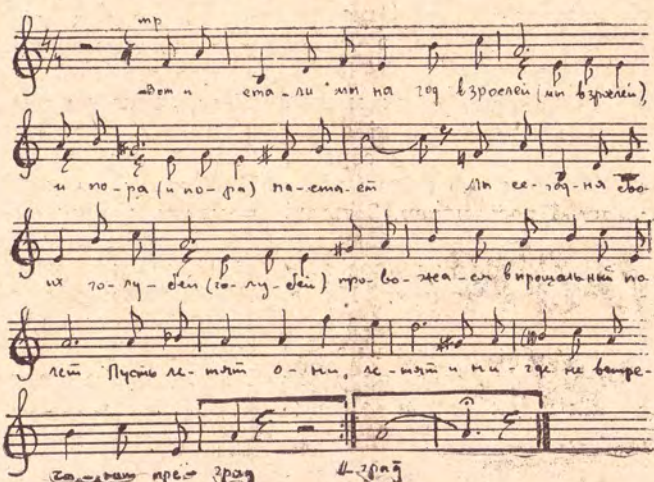 mp
Вот и ста-ли мы на год взрослей (мы взрослей)
и по-ра (и по-ра) на-ста-ёт Мы се-год-ня сво-
их го-лу-бей (го-лу-бей) про-во-жа-ем в прощальный по-
лёт Пусть ле-тят о-ни, ле-тят и ни-где не встре-
ча-ют пре-град
II. град